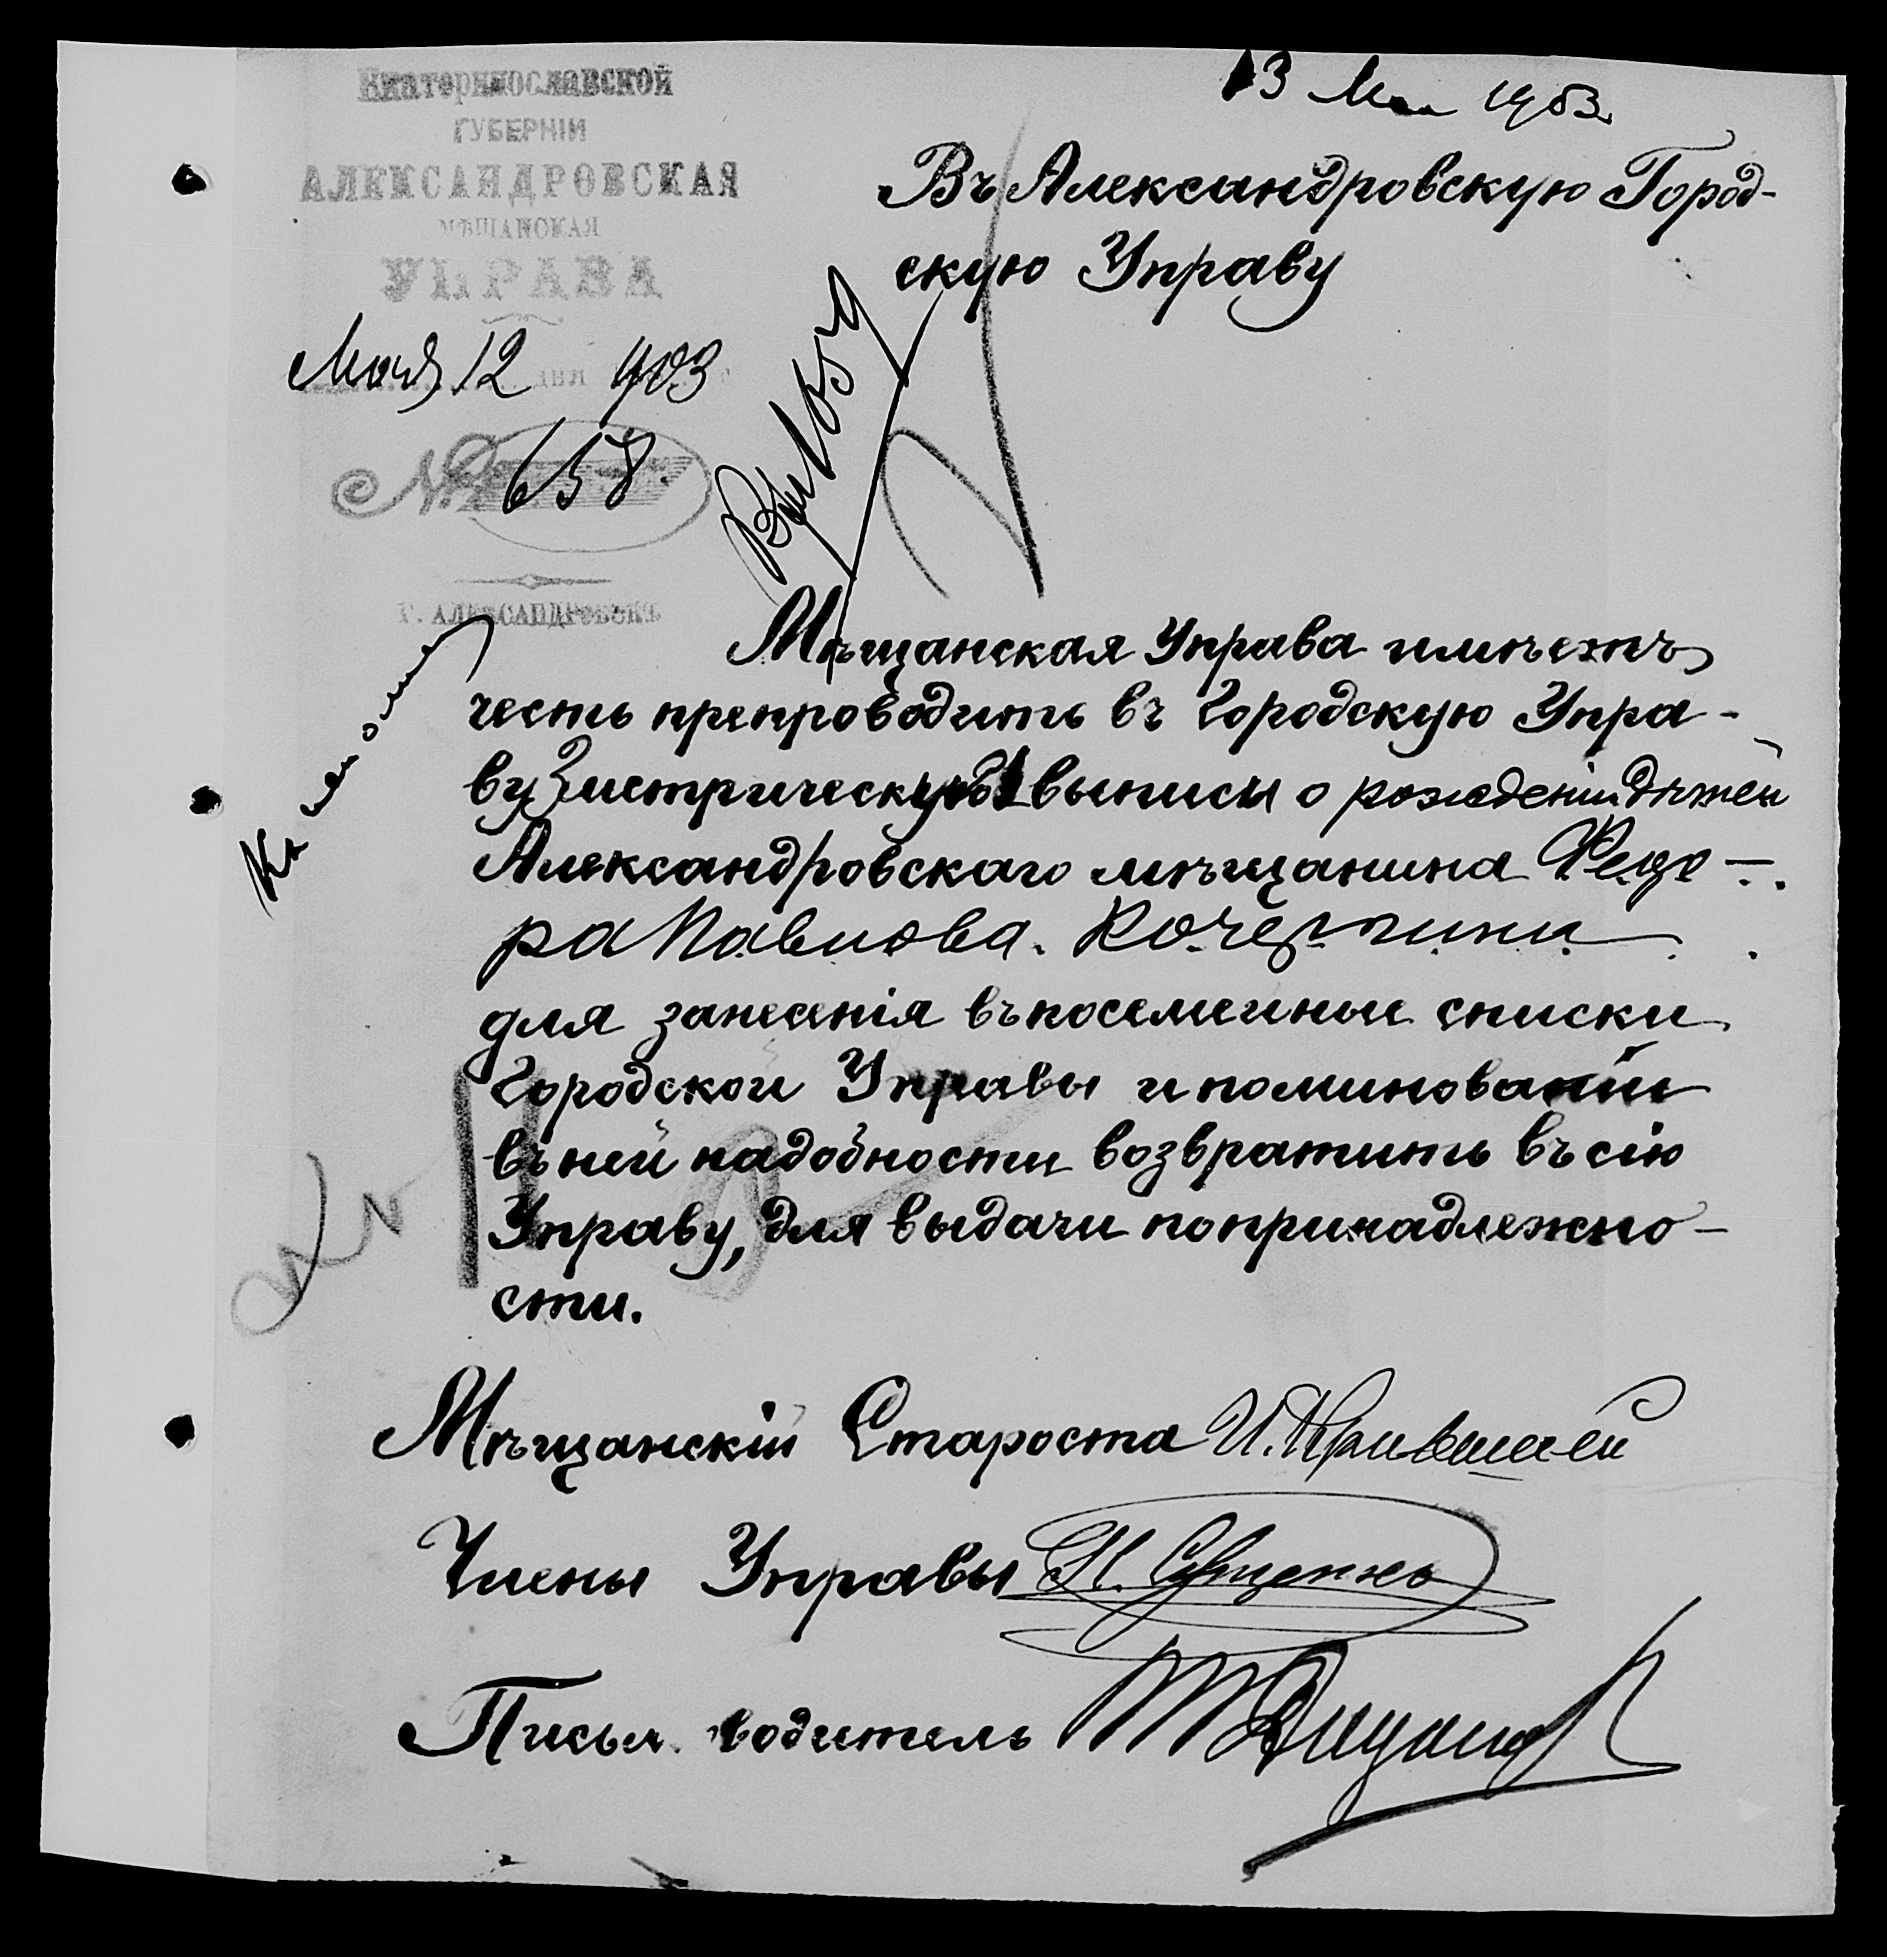 Екатеринославской
ГУБЕРНІИ
АЛЕКСАНДРОВСКАЯ
МѢЩАНСКАЯ
УПРАВА
Мая 12 дня 1903
№ 658.
Г. АЛЕКСАНДРОВСКЪ
13 Мая 1903
Въ Александровскую Город-
скую Управу
Мѣщанская Управа имѣетъ
честь препроводить въ Городскую Упра-
ву 3 метрическую выписи о рожденіи дѣтей
Александровскаго мѣщанина Федо-
ра Павлова
для занесенія въ посемейные списки
Городской Управы и поминованіи
въ ней надобности возвратить въ сію
Управу, для выдачи попринадлежно-
сти.
Мѣщанскій Староста И.
Члены Управы
Письм. водитель